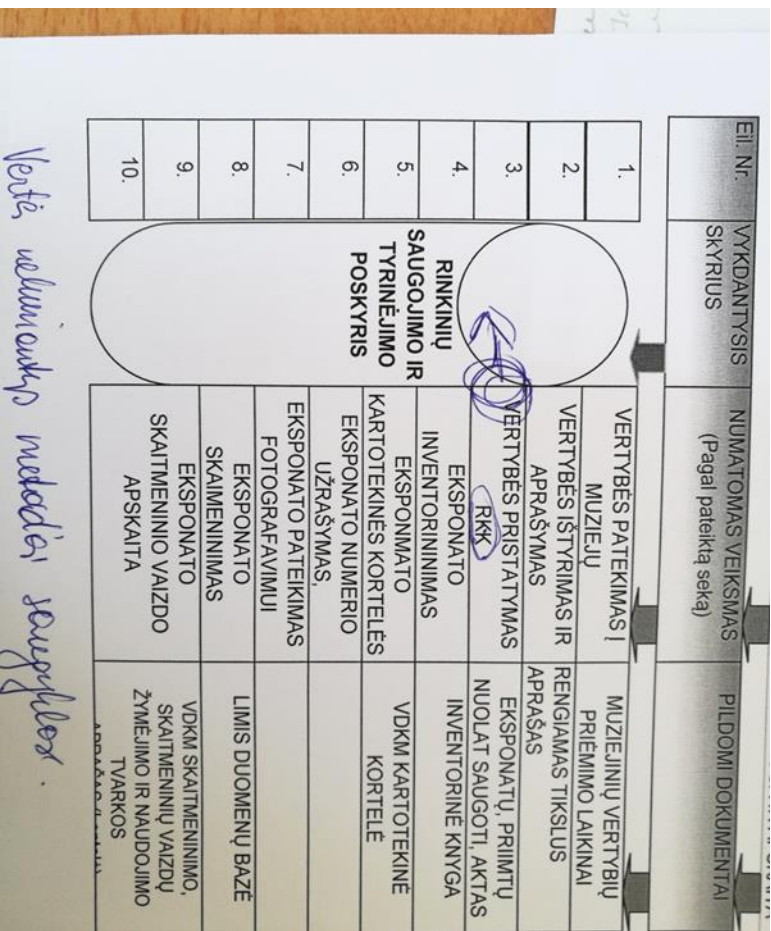 Eil. Nr.
VYKDANTYSIS
SKYRIUS
NUMATOMAS VEIKSMAS
(Pagal pateiktą seką)
PILDOMI DOKUMENTAI
1.
VERTYBĖS PATEKIMAS Į
MUZIEJŲ
MUZIEJINIŲ VERTYBIŲ
PRIĖMIMO LAIKINAI
2.
VERTYBĖS IŠTYRIMAS IR
APRAŠYMAS
RENGIAMAS TIKSLUS
APRAŠAS
3.
VERTYBĖS PRISTATYMAS
RKK
EKSPONATŲ, PRIIMTŲ
NUOLAT SAUGOTI, AKTAS
4.
EKSPONATO
INVENTORININIMAS
INVENTORINĖ KNYGA
5.
EKSPONMATO
KARTOTEKINĖS KORTELĖS
VDKM KARTOTEKINĖ
KORTELĖ
6.
EKSPONATO NUMERIO
UŽRAŠYMAS,
7.
EKSPONATO PATEIKIMAS
FOTOGRAFAVIMUI
8.
EKSPONATO
SKAIMENINIMAS
LIMIS DUOMENŲ BAZĖ
9.
EKSPONATO
SKAITMENINIO VAIZDO
10.
APSKAITA
VDKM SKAITMENINIMO,
SKAITMENINIŲ VAIZDŲ
ŽYMĖJIMO IR NAUDOJIMO
TVARKOS
RINKINIŲ
SAUGOJIMO IR
TYRINĖJIMO
POSKYRIS
metodai saugyklos.